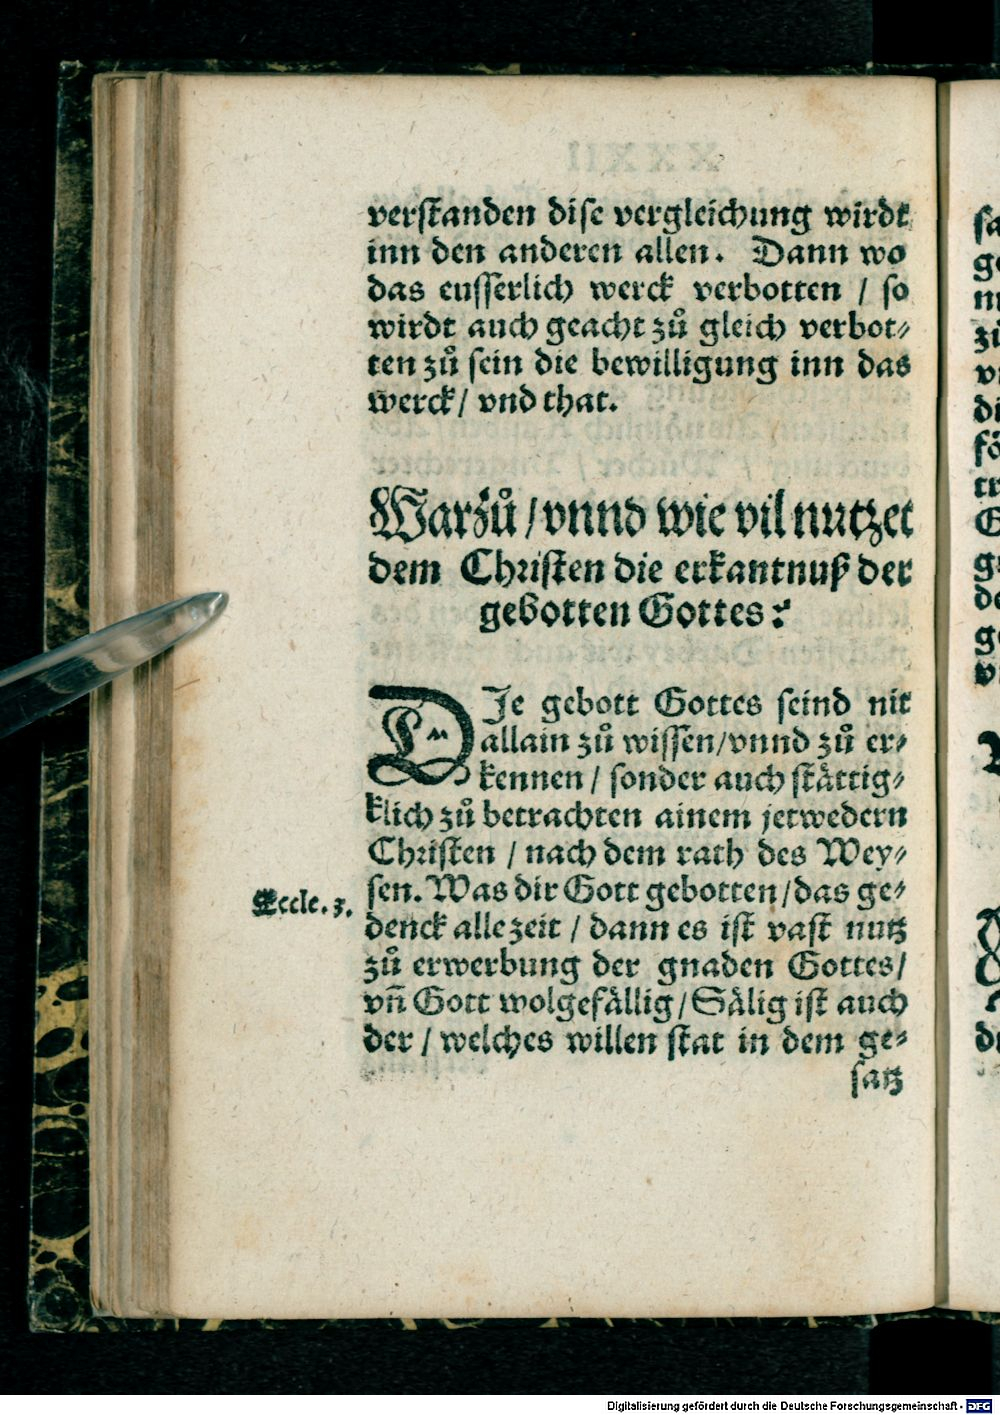 verstanden dise vergleichung wirdt
inn den anderen allen. Dann wo
das eusserlich werck verbotten / so
wirdt auch geacht zů gleich verbot⸗
ten zů sein die bewilligung inn das
werck / vnd that.
Warzů / vnnd wie vil nutzet
dem Christen die erkantnuß der
gebotten Gottes:
DJe gebott Gottes seind nit
allain zů wissen / vnnd zů er⸗
kennen / sonder auch stättig⸗
klich zů betrachten ainem jetwedern
Christen / nach dem rath des Wey⸗
sen. Was dir Gott gebotten / das ge⸗
Eccle. 3.
denck alle zeit / dann es ist vast nutz
zů erwerbung der gnaden Gottes /
vñ Gott wolgefällig / Sälig ist auch
der / welches willen stat in dem ge⸗
satz
Digitalisierung gefördert durch die Deutsche Forschungsgemeinschaft - DFG